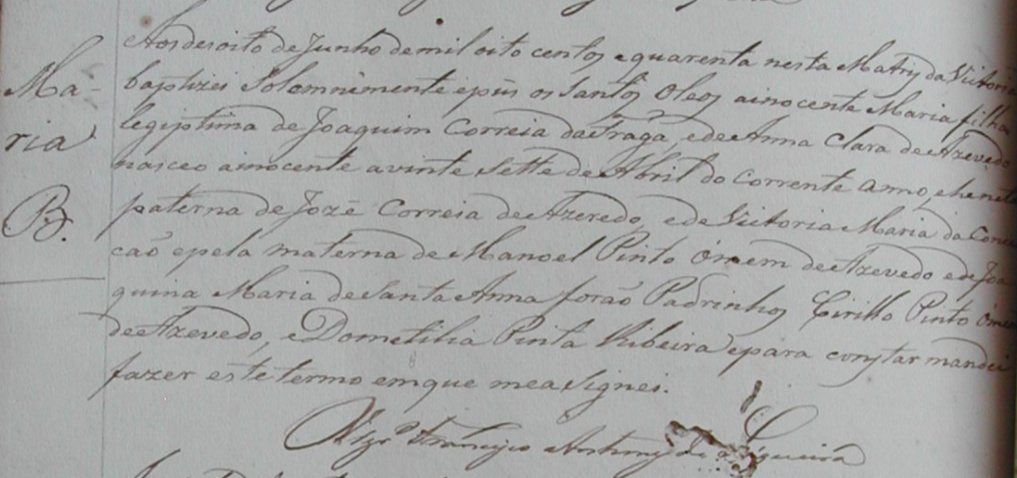 Aos desoito de Junho de mil oito centos e quarenta nesta Matriz da Victoria
Ma-
baptizei Solemnimente e pus os Santos Oleos a inocente Maria filha
ria
legiptima de Joaquim Correia da Fraga, e de Anna Clara de Azevedo
nasceo a inocente a vinte Sette de Abril do Corrente anno, e he neta
B.
paterna de Jozé Correia de Azevedo, e de Victoria Maria da Concei
cão e pela materna de Manoel Pinto Omem de Azevedo e de Joa
quina Maria de Santa Anna forão Padrinhos Cirillo Pinto Omem
de Azevedo, e Dometilia Pinta Ribeira e para constar mandei
fazer este termo em que me aSignei.
Vigrº Francisco Antonio de Siqueira